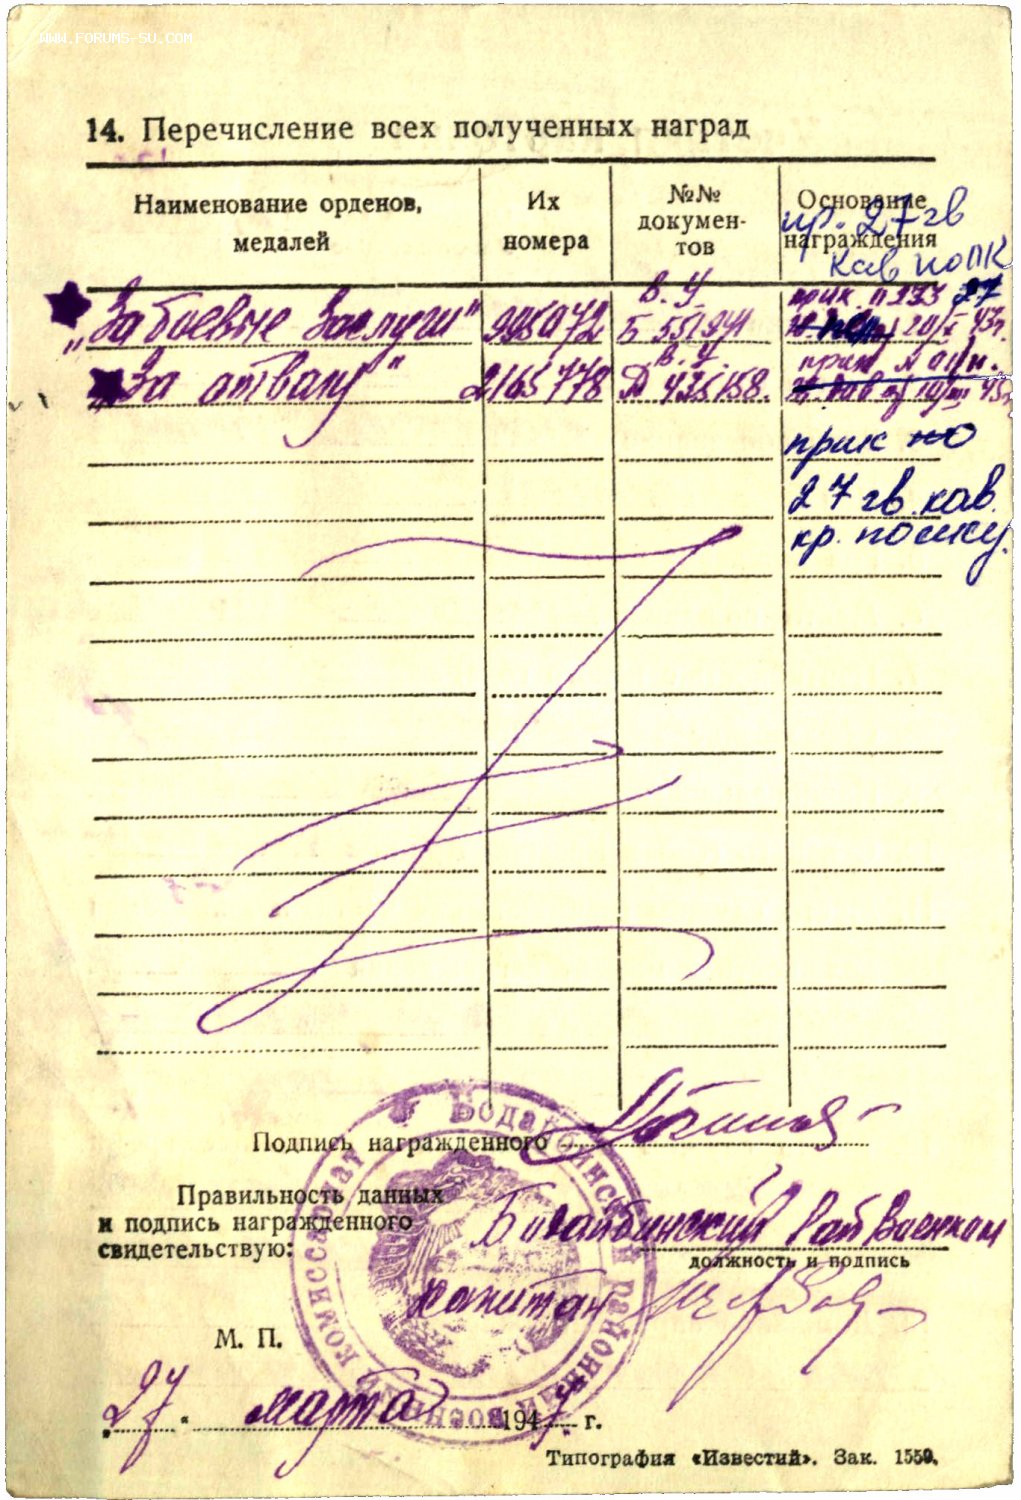 WWW.FORUMS-SU.COM
14. Перечисление всех полученных наград
Наименование орденов, медалей
Их номера
№№ докумен-тов
Основание награждения
пр. 27 гв
кав полк
„За боевые заслуги" 995072 В. У. Б 551941 прик 27
20/X 43г.
„За отвагу" 2165778 В. У. Д 435158. прик
45г
прик по
27 гв. кав.
кр. полку.
Подпись награжденного
Правильность данных
и подпись награжденного
свидетельствую:
Бодайбинский Рай Военком
должность и подпись
капитан
М. П.
27 " марта 1947 г.
Бодайбинский районный военный комиссариат
Типография «Известий». Зак. 1559.